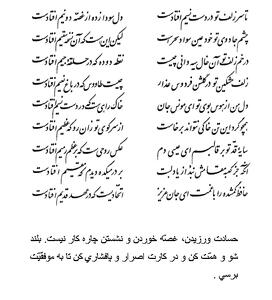 تا سر زلف تو در دست نسیم افتادست
دل سودازده از غصه دو نیم افتادست
چشم جادوی تو خود عین سواد سحر است
لیکن این هست که این نسخه سقیم افتادست
در خم زلف تو آن خال سیه دانی چیست
نقطه دوده که در حلقه جیم افتادست
زلف مشکین تو در گلشن فردوس عذار
چیست طاووس که در باغ نعیم افتادست
دل من از هوس بوی تو ای مونس جان
خاک راهیست که در دست نسیم افتادست
همچو گرد این تن خاکی نتواند برخاست
از سر کوی تو زان رو که عظیم افتادست
سایه قد تو بر قالبم ای عیسی دم
عکس روحیست که بر عظم رمیم افتادست
آنکه جز کعبه مقامش نبد از یاد لبت
بر در میکده دیدم که مقیم افتادست
حافظ گمشده را با غمت ای جان عزیز
اتحادیست که در عهد قدیم افتادست
حسادت ورزیدن، غصّه خوردن و نشستن چاره کار نیست. بلند
شو و همّت کن و در کارت اصرار و پافشاری کن تا به موفقیّت
برسي .